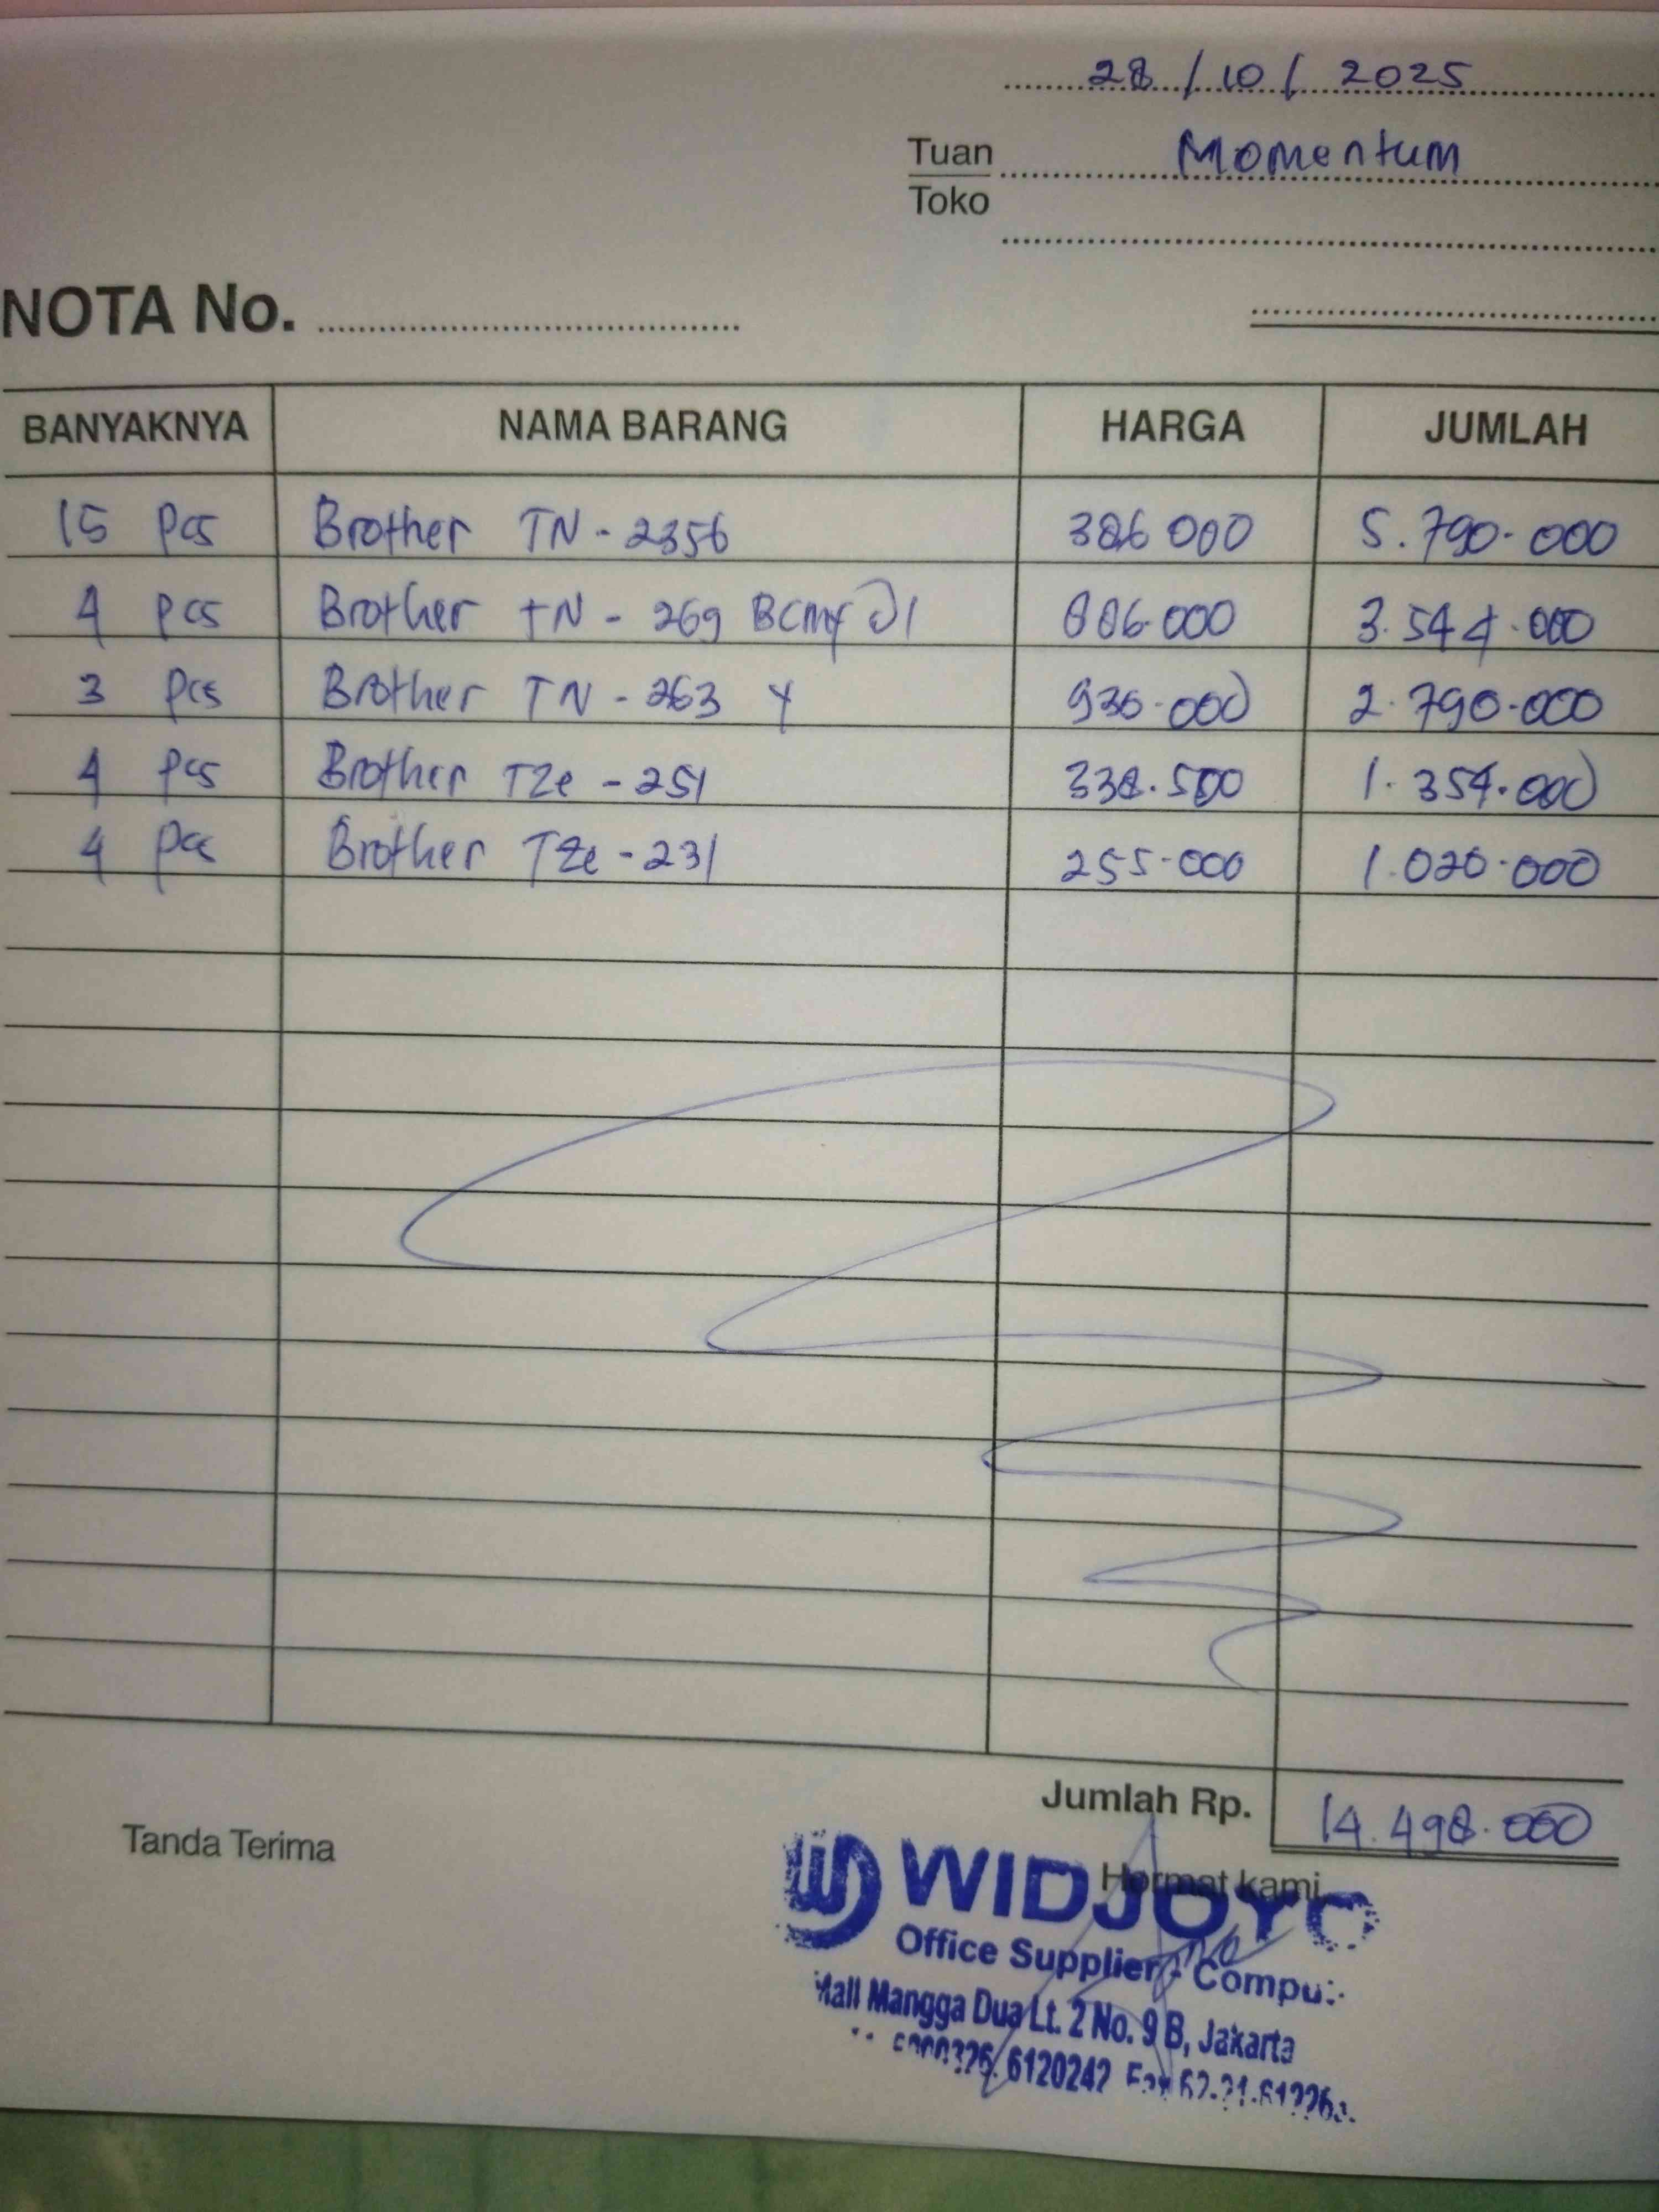 28 / 10 / 2025
Tuan Momentum
Toko
NOTA No.
BANYAKNYA NAMA BARANG HARGA JUMLAH
15 Pcs Brother TN - 2356 386 000 5.790.000
4 Pcs Brother TN - 269 BCMY @1 886.000 3.544.000
3 Pcs Brother TN - 263 Y 930.000 2.790.000
4 Pcs Brother TZe - 251 338.500 1.354.000
4 Pcs Brother TZe - 231 255.000 1.020.000
Jumlah Rp. 14.498.000
Tanda Terima Hormat kami
WIDJOYO
Office Supplier -
Mall Mangga Dua Lt. 2 No. 9 B, Jakarta
6120242 Fax 62-21-